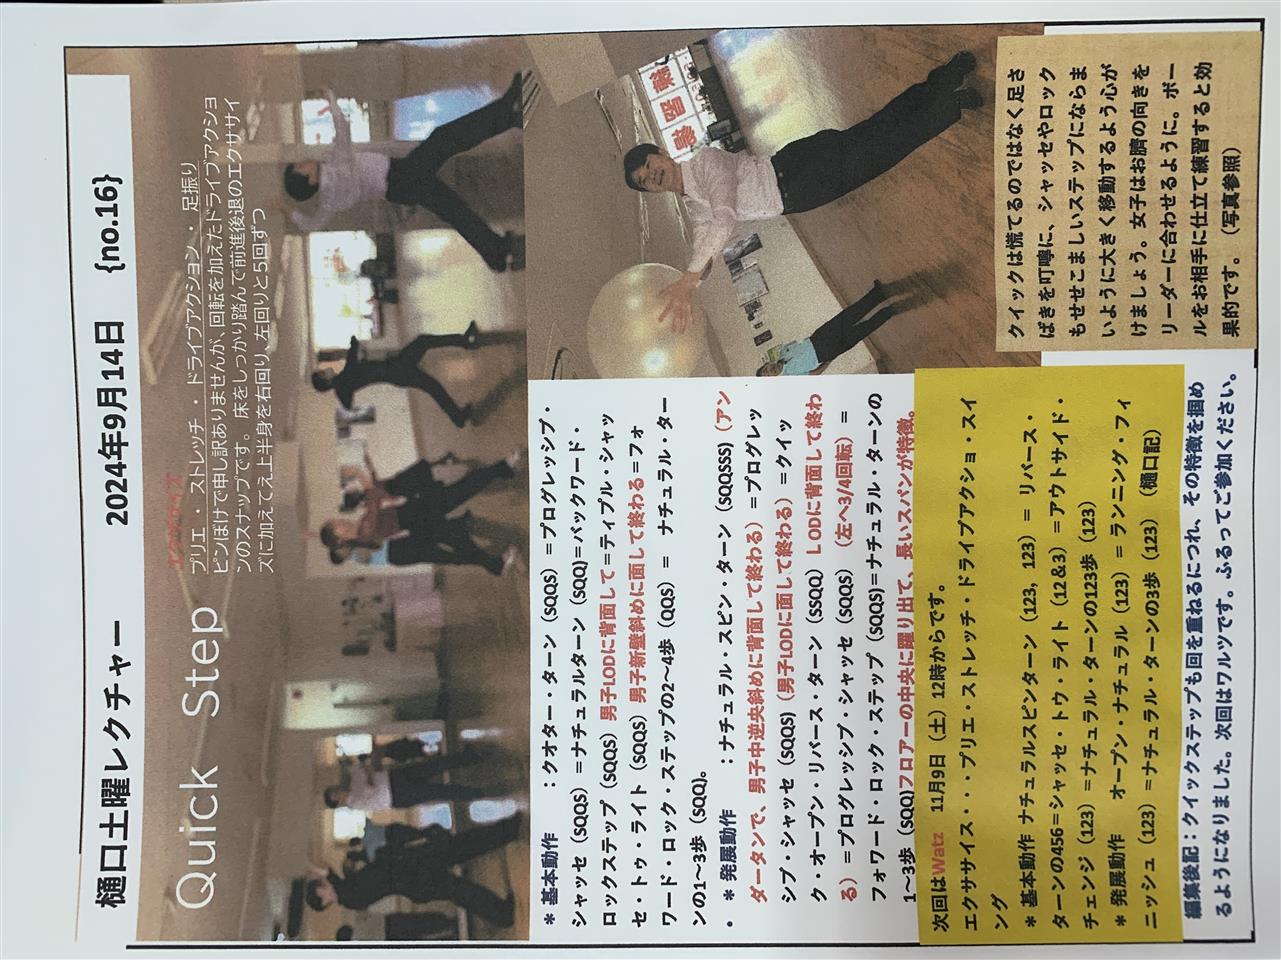 樋口土曜レクチャー　2024年9月14日　{no.16}
Quick Step
エクササイズ
プリエ ・ ストレッチ ・ ドライブアクション ・ 足振り
ピンぼけで申し訳ありませんが、回転を加えたドライブアクショ
ンのスナップです。床をしっかり踏んで前進後退のエクササイ
ズに加えてえ上半身を右回り、左回りと5回ずつ
練習場
＊基本動作　：クオター・ターン（SQQS）＝プログレッシブ・
シャッセ（SQQS）＝ナチュラルターン（SQQ)＝バックワード・
ロックステップ（SQQS）男子LODに背面して＝ティプル・シャッ
セ・トゥ・ライト（SQQS）男子新壁斜めに面して終わる＝フォ
ワード・ロック・ステップの2～4歩（QQS）＝ ナチュラル・ター
ンの1～3歩（SQQ)。
・ ＊発展動作　：ナチュラル・スピン・ターン（SQQSSS)（アン
ダータンで、男子中逆央斜めに背面して終わる）＝プログレッ
シブ・シャッセ（SQQS)（男子LODに面して終わる）＝クイッ
ク・オープン・リバース・ターン（SSQQ）ＬODに背面して終わ
る）＝プログレッシブ・シャッセ（SQQS）（左へ3/4回転）＝
フォワード・ロック・ステップ（SQQS)＝ナチュラル・ターンの
1～3歩（SQQ)フロアーの中央に躍り出て、長いスパンが特徴。
クイックは慌てるのではなく足さ
ばきを叮嚀に、シャッセやロック
もせせこましいステップにならま
いように大きく移動するよう心が
けましょう。女子はお臍の向きを
リーダーに合わせるように。ボー
ルをお相手に仕立て練習すると効
果的です。（写真参照）
次回はWatz　11月9日（土）12時からです。
エクササイス・・・プリエ・ストレッチ・ドライブアクショ・スイ
ング
＊基本動作 ナチュラルスピンターン（123，123）＝ リバース・
ターンの456＝シャッセ・トゥ・ライト（12＆3）＝アウトサイド・
チェンジ（123）＝ナチュラル・ターンの123歩（123）
＊発展動作　オープン・ナチュラル（123）＝ランニング・フィ
ニッシュ（123）＝ナチュラル・ターンの3歩（123）（樋口記）
編集後記：クイックステップも回を重ねるにつれ、その特徴を掴め
るようになりました。次回はワルツです。ふるってご参加ください。